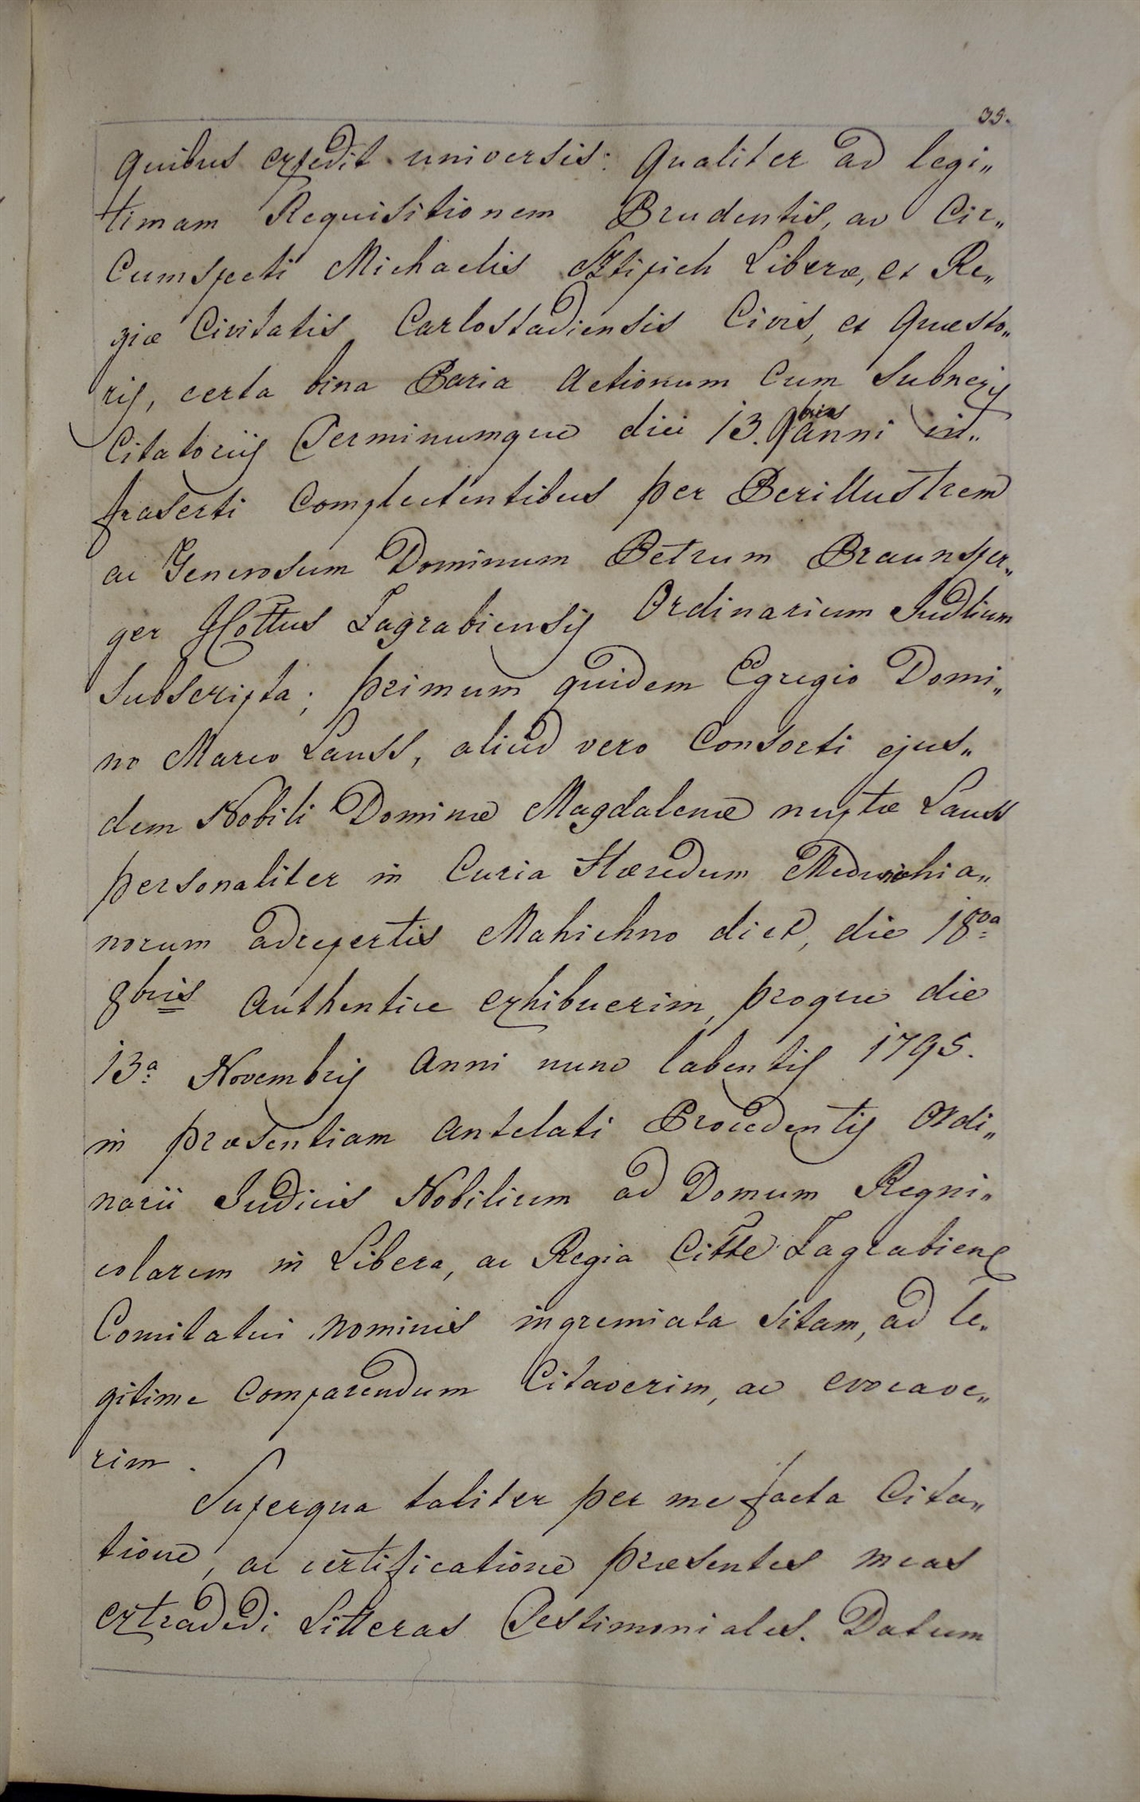 35.
quibus expedit universis: Qualiter ad legi„
timam Requisitionem Prudentis, ac Cir„
Cumspecti Michaelis Sztipich Liberæ, et Re„
giæ Civitatis Carlostadiensis Civis, et Quæsto„
ris, certa bina Paria Actionum Cum Subnexis
Citatoriis Terminumque diei 13. 9bris anni in„
fraserti Complectentibus per Perillustrem
ac Generosum Dominum Petrum Braunsper„
ger Icottus Zagrabiensis Ordinarium Judlium
Subscripta; primum quidem Egregio Domi„
no Marco Lauss, aliud vero Consorti ejus„
dem Nobili Dominæ Magdalenæ nuptæ Lauss
personaliter in Curia Hæredum
norum adrepertis Mahichno dict, die 18va
8bris Authentice exhibuerim, proque die
13a Novembris Anni nunc labentis 1795.
in præsentiam Antelati Procedentis Ordi„
narii Judicis Nobilium ad Domum Regni„
colarum in Libera, ac Regia Citte Zagrabien
Comitatui nominis ingremiata sitam, ad le„
gitime Comparendum Citaverim, ac evocave„
rim.
Superqua taliter per me facta Cita„
tione, ac certificatione præsentes meas
extradedi Litteras Testimoniales. Datum